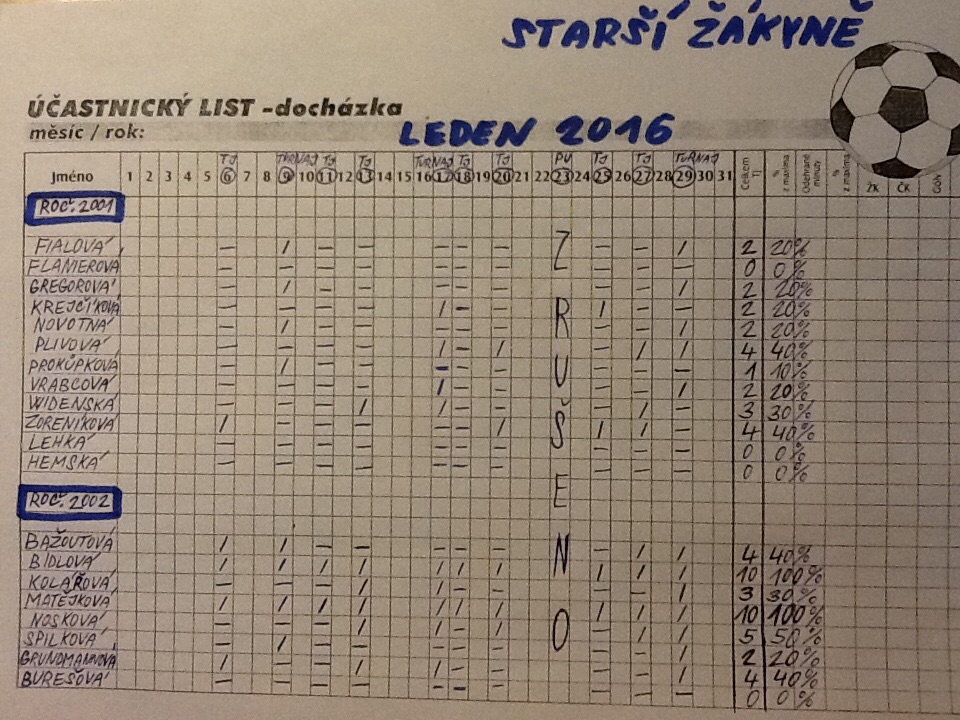 STARŠÍ ŽÁKYNĚ
ÚČASTNICKÝ LIST - docházka
měsíc / rok: LEDEN 2016
TJ TURNAJ TJ TJ TURNAJ TJ TJ PU TJ TJ TURNAJ
Jméno 1 2 3 4 5 6 7 8 9 10 11 12 13 14 15 16 17 18 19 20 21 22 23 24 25 26 27 28 29 30 31 Celkem TJ % z maxima Odehrané minuty % z maxima ŽK ČK Góly
ROČ. 2001
FIALOVÁ — / — — — — — — — / 2 20%
FLANIEROVÁ — — — — — — — — — — 0 0%
GREGOROVÁ — / — — — — — — — / 2 20%
KREJČÍKOVÁ — — — — / — — / — — 2 20%
NOVOTNÁ — / — — — — — — — / 2 20%
PLIVOVÁ — — — — / — / — / / 4 40%
PROKŮPKOVÁ — / — — — — — — — — 1 10%
VRABCOVÁ — — — — / — — — — / 2 20%
WIDENSKÁ — — — / / — — — / — 3 30%
ZOŘENÍKOVÁ / — — — — — / / / — 4 40%
LEHKÁ — — — — — — — — — — 0 0%
HEMSKÁ — — — — — — — — — — 0 0%
ROČ. 2002
BAŽOUTOVÁ / / — — — — — — / / 4 40%
BÍDLOVÁ / / / / / / / / / / 10 100%
KOLÁŘOVÁ — — — / / — — — — / 3 30%
MATĚJKOVÁ / / / / / / / / / / 10 100%
NOSKOVÁ — — — / / — / — / / 5 50%
ŠPILKOVÁ — / — — — — — — — / 2 20%
GRUNDMANNOVÁ / — — / / — — — — / 4 40%
BUREŠOVÁ — — — — — — — — — — 0 0%
ZRUŠENO